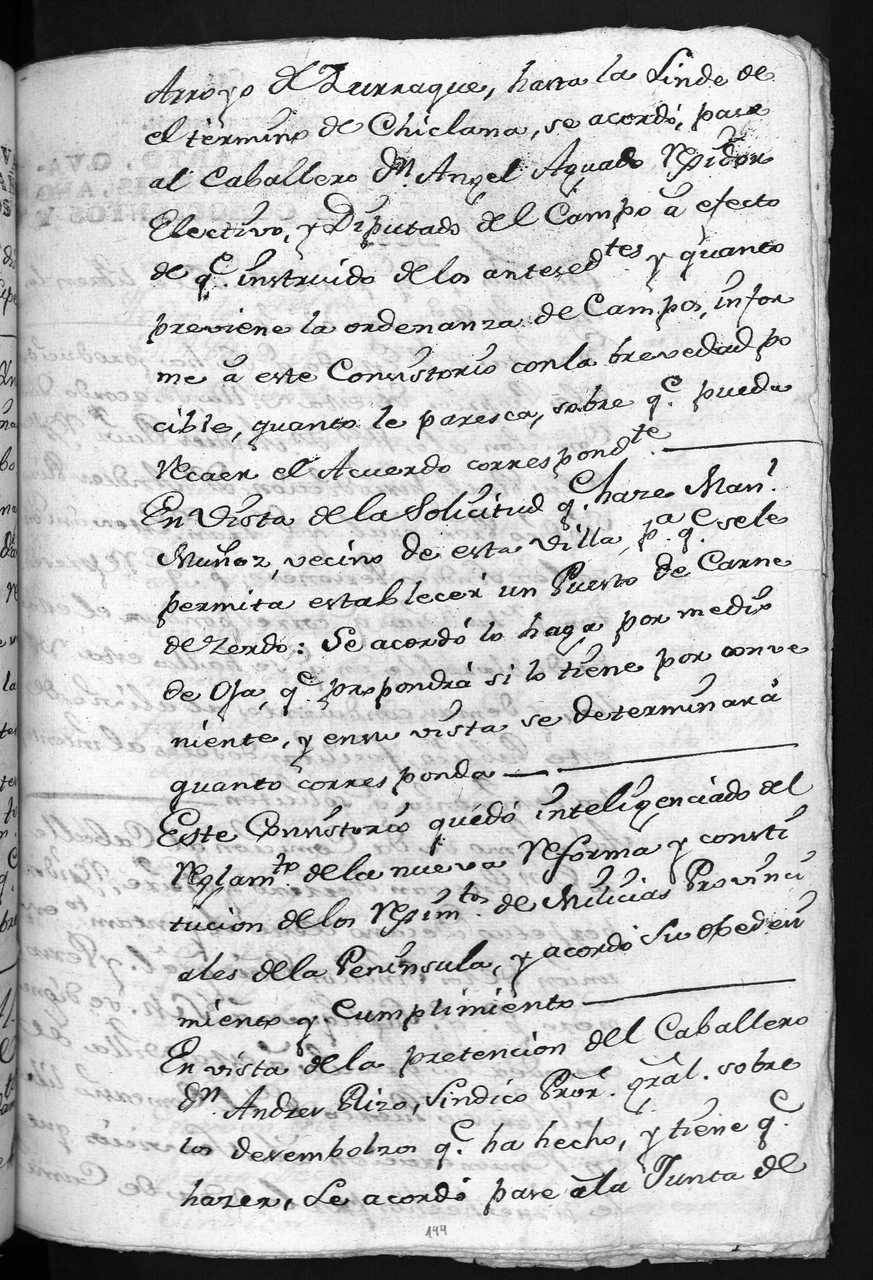 Arroyo del Zurraque, hasta la Linde de
el termino de Chiclana, se acordó, pase
al Caballero Dn. Angel Aguado Rexidor
Electivo, y Diputado del Campo á efecto
de qe. instruido de los antesedtes y quanto
previene la ordenanza de Campo, infor
me á este Consistorio con la brevedad po
cible, quanto le paresca, sobre qe. pueda
recaer el Acuerdo correspondte.
En vista de la Solicitud qe. haze Manl.
Muñoz, vecino de esta villa, pa. qe. sele
permita establecer un Puesto de Carne
de Zerdo: Se acordó lo haga por medio
de Oja, qe. propondrá si lo tiene por conve
niente, y en su vista se determinará
quanto corresponda
Este Consistorio quedó inteligenciado del
Reglamto. de la nueva reforma y consti
tucion de los Regimtos. de Milicias Provinci
ales de la Peninsula, y acordó su obedeci
miento y Cumplimiento
En vista de la pretencion del Caballero
Dn. Andres Rizo, Sindico Pror. gral. sobre
los desembolzos qe. ha hecho, y tiene qe.
hazer, Se acordó pase á la Junta de
144